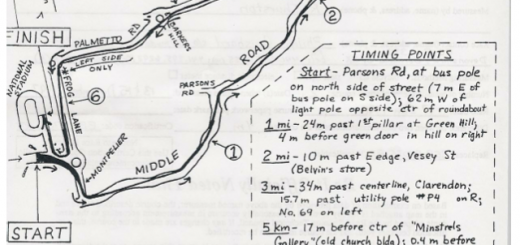 FINISH
PALMETTO RD
GARNERS HILL
LEFT SIDE
ONLY
NATIONAL STADIUM
FROG LANE
6
MONTPELIER
START
MIDDLE ROAD
PARSONS
RD
1
2
TIMING POINTS
Start - Parsons Rd, at bus pole
on north side of street (7 m E of
bus pole on S side); 62 m W of
light pole opposite ctr of roundabout
1 mi - 24m past 1st pillar at Green Hill;
4 m before green door in hill on right
2 mi - 10 m past E edge, Vesey St
(Belvin's store)
3 mi - 34m past centerline, Clarendon;
15.7m past utility pole #P4 on R;
No. 69 on left
5 km - 17 m before ctr of "Minstrels
Gallery" (old church bldg); 0.4 m before